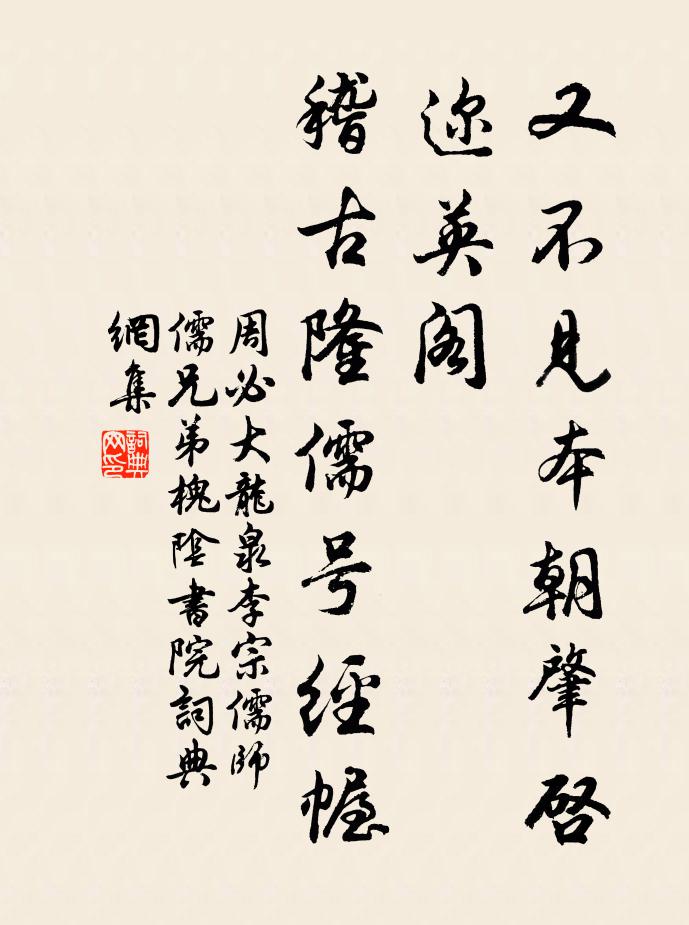 又不見本朝肇啓
邇英閣
稽古隆儒号經幄
周必大龍泉李宗儒師
儒兄弟槐陰書院詞典
網集
詞典网印